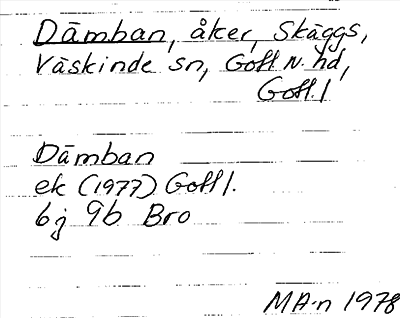 Dämban, åker, Skäggs,
Väskinde sn, Gotl N. hd,
Gotl. l
Dämban
ek (1977) Gotl l.
6j 9b Bro
MA:n 1978